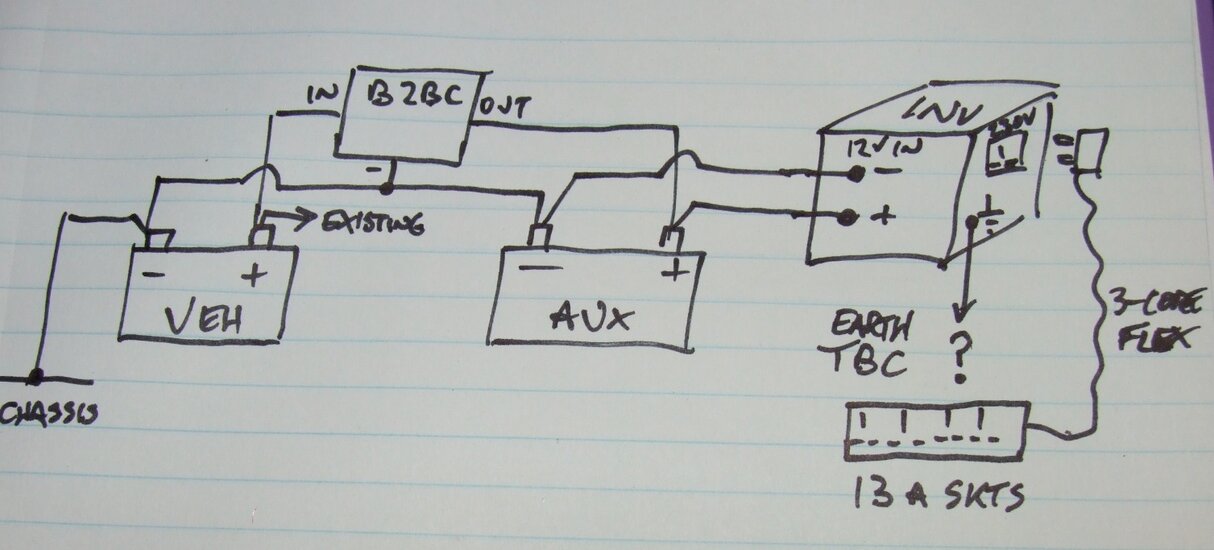 IN B2BC OUT
-
EXISTING
- +
VEH
CHASSIS
- +
AUX
INV
230V
12V IN
-
+
EARTH
TBC
?
3-CORE
FLEX
13 A SKTS